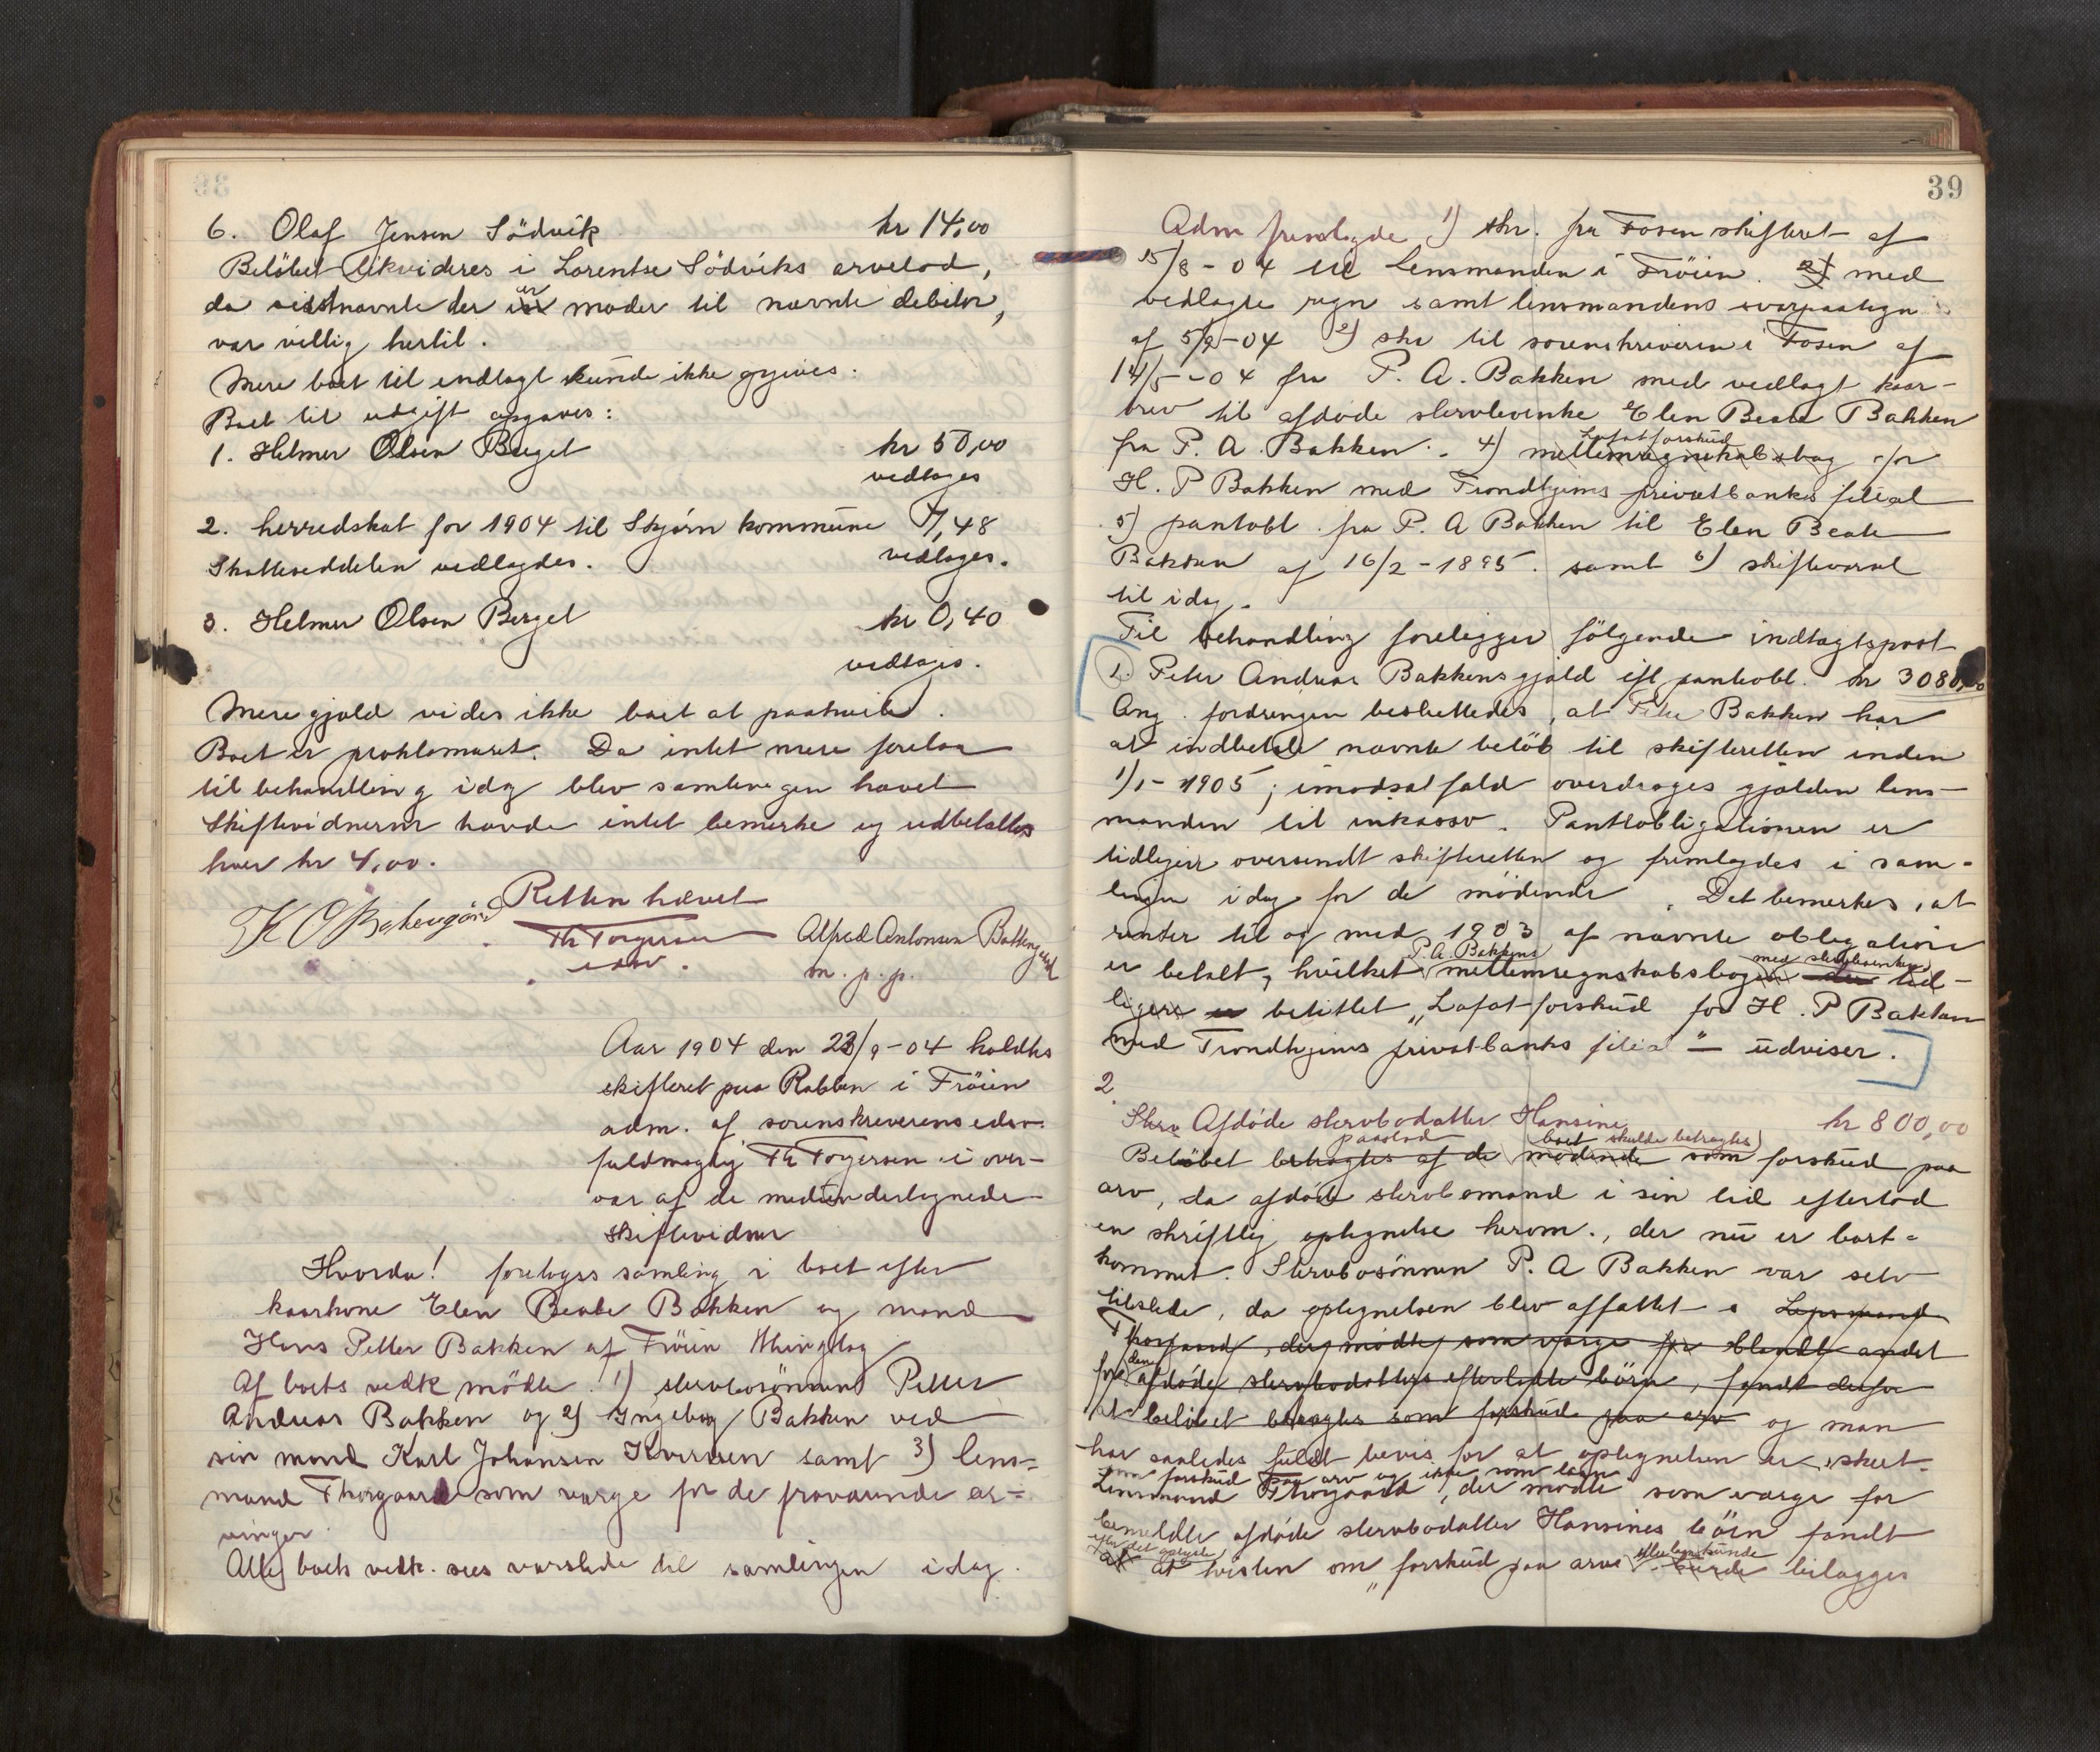 6. Olaf Jensen Södvik kr 14,00
Belöbet likvideres i Lorentse Södviks arvelod,
da sidstnævnte der er moder til nævnte debitor,
var villig hertil.
Mere boet til indtægt kunde ikke opgives.
Boet til udgift opgaves:
1. Helmer Olsen Berget kr 50,00
vedtages
2. herredskat for 1904 til Skjørn kommune 7,48
Skatteseddelen vedlagdes. vedtages.
3. Helmer Olsen Berget kr 0,40
vedtages.
Mere gjæld vides ikke boet at paahvile.
Boet er proklameret. Da intet mere forelaa
til behandling idag blev samlingen hævet
Skiftevidnerne havde intet bemerke og udbetaltes
hver kr 4,00.
Retten hævet
Th Torgersen Alfred Antonsen
edsv. m. p. p.
Aar 1904 den 23/9-04 holdtes
skifteret paa Rabben i Fröien
adm. af sorenskriverens edsv.
fuldmægtig Th Torgersen i over-
vær af de medundertegnede
skiftevidner
Hvorda! foretoges samling i boet efter
kaarkone Elen Beate Bakken og mand
Hans Petter Bakken af Fröien thinglag
Af boets vedk mödte 1) stervbosönnen Petter
Andreas Bakken og 2) Ingeborg Bakken ved
sin mand Karl Johansen Kverren samt 3) lens-
mand Thorgaard som værge for de fraværende ar-
vinger.
Alle boets vedk. sees varslede til samlingen idag.
39
Adm fremlagde 1) skr. fra Fosen skifteret af
15/8-04 til Lensmanden i Fröien. 2) med
vedlagte regn samt lensmandens svarpaategn
af 5/9-04 2) skr til sorenskriveren i Fosen af
14/5-04 fra P. A. Bakken med vedlagt kaar-
brev til afdöde stervboenke Elen Beate Bakken
fra P. A. Bakken. 4) mellemregnskabsbog Lofotforskud for
H. P Bakken med Trondhjems privatbanks filial
5) pantobl. fra P. A Bakken til Elen Beate
Bakken af 16/2-1895. samt 6) skiftevarsel
til idag.
Til behandling foreligger fölgende indtægtspost
1. Peter Andreas Bakkens gjæld ifl pantobl. kr 3080,00
Ang. fordringen besluttedes, at Peter Bakken har
at indbetale nævnte belöb til skifteretten inden
1/1-1905; imodsat fald overdrages gjælden lens-
manden til inkasso. Pantobligationen er
tidligere oversendt skifteretten og fremlagdes i sam-
lingen idag for de mödende. Det bemerkes, at
renter til og med 1903 af nævnte obligation
er betalt, hvilket P. A. Bakkens mellemregnskabsbog med stervboenken der tid-
ligere er betitlet "Lofot-forskud for H. P Bakken
med Trondhjems privatbanks filial" - udviser.
2.
Skrv Afdöde stervbodatter Hansine kr 800,00
Belöbet betragtes paastod af de mödende boet skulde betragtes som forskud paa
arv, da afdöde stervbomand i sin tid efterlod
en skriftlig optegnelse herom., der nu er bort-
kommet. Stervbosönnen P. A Bakken var selv
tilstede, da optegnelsen blev affattet. Lensmand
Thorgaard, der mödte som værge for blandt andet
for den afdöde stervbodatters efterladte börn, fandt derfor
at belöbet betragtes som forskud paa arv og man
har saaledes fuldt bevis for at optegnelsen er skeet
som forskud paa arv og ikke som laan
Lensmand Thorgaard, der mödte som værge for
bemeldte afdöde stervbodatter Hansines börn fandt
efter det oplyste
at tvisten om "forskud paa arv kunde burde bilægges